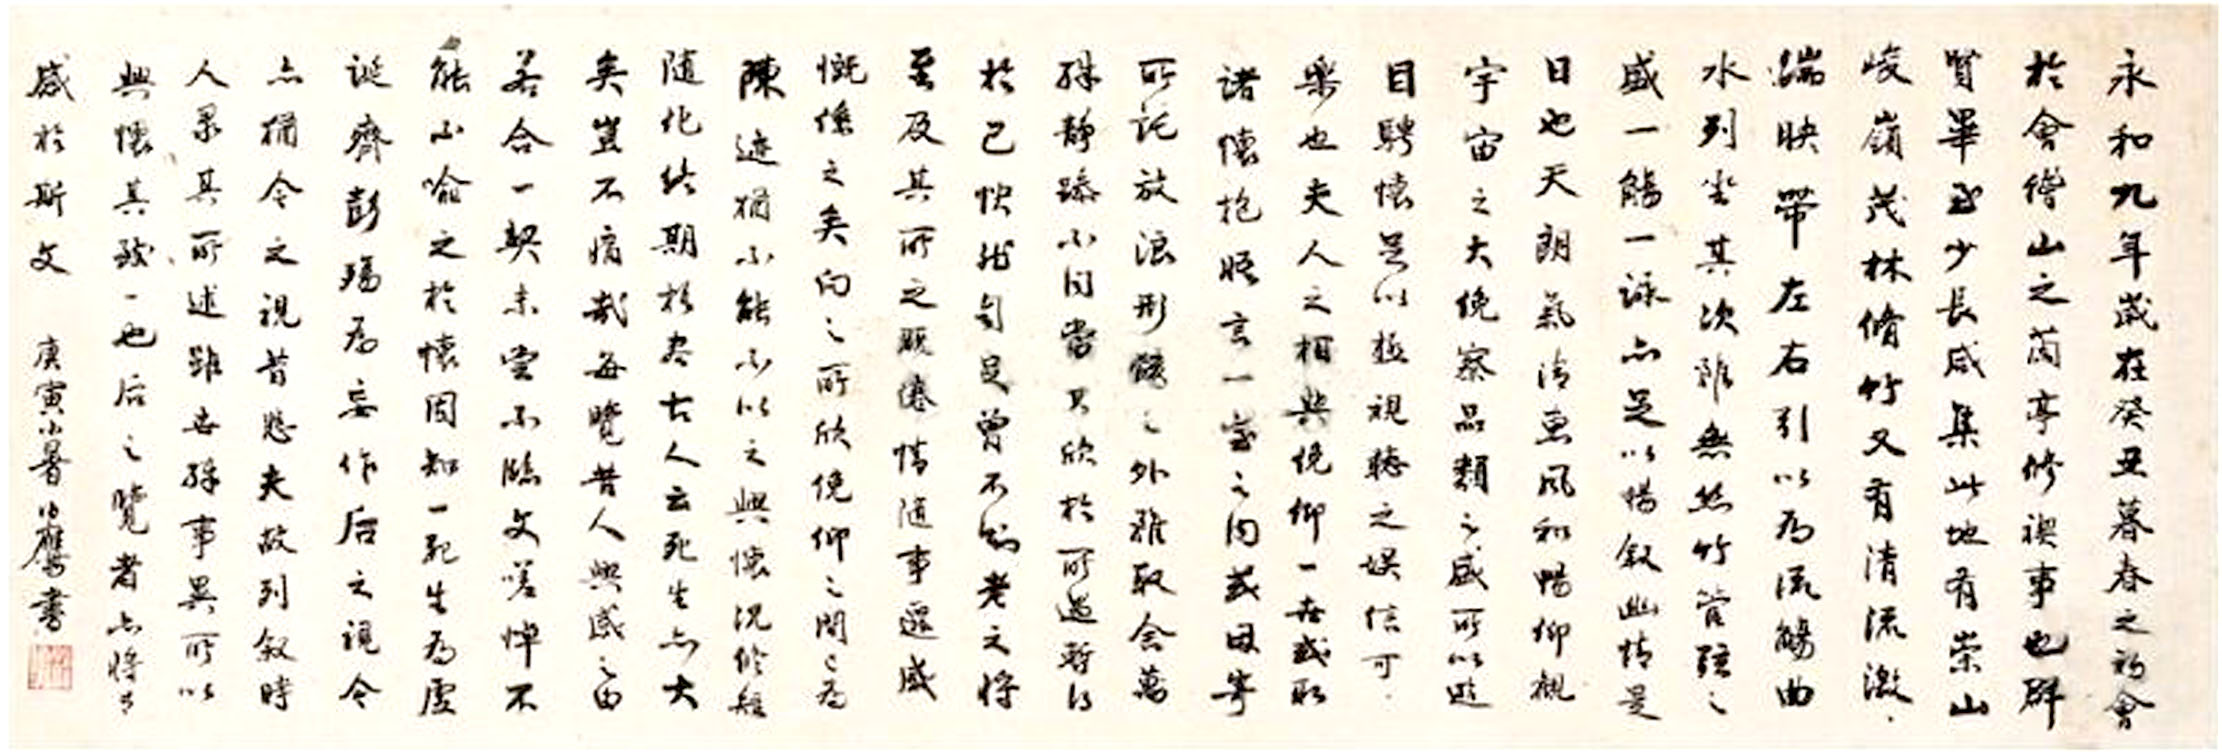 永和九年歲在癸丑暮春之初會
於會稽山之蘭亭修禊事也群
賢畢至少長咸集此地有崇山
峻嶺茂林脩竹又有清流激
湍映帶左右引以為流觴曲
水列坐其次雖無絲竹管弦之
盛一觴一詠亦足以暢敘幽情是
日也天朗氣清惠風和暢仰觀
宇宙之大俛察品類之盛所以遊
目騁懷足以極視聽之娛信可
樂也夫人之相與俛仰一世或取
諸懷抱悟言一室之內或因寄
所託放浪形骸之外雖取舍萬
殊靜躁不同當其欣於所遇暫得
於己怏然自足曾不知老之將
至及其所之既倦情隨事遷感
慨係之矣向之所欣俛仰之間已為
陳迹猶不能不以之興懷況脩短
隨化終期於盡古人云死生亦大
矣豈不痛哉每覽昔人興感之由
若合一契未嘗不臨文嗟悼不
能不喻之於懷固知一死生為虛
誕齊彭殤為妄作后之視今
亦猶今之視昔悲夫故列敘時
人錄其所述雖世殊事異所以
興懷其致一也后之覽者亦將有
感於斯文 庚寅小暑 書